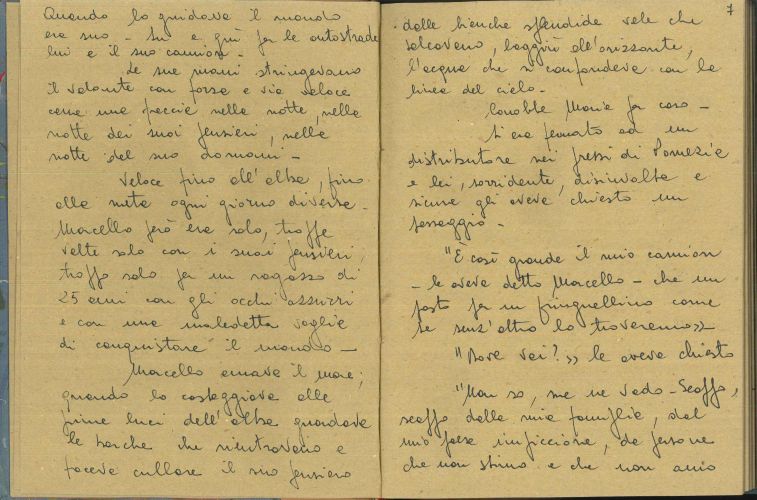 Quando lo guidava il mondo
era suo - Su e giù per le autostrade
lui e il suo camion -
Le sue mani stringevano
il volante con forza e via veloce
come una freccia nella notte, nella
notte dei suoi pensieri, nella
notte del suo domani -
Veloce fino all'alba, fino
alla meta ogni giorno diversa -
Marcello però era solo, troppe
volte solo con i suoi pensieri,
troppo solo per un ragazzo di
25 anni con gli occhi azzurri
e con una maledetta voglia
di conquistare il mondo -
Marcello amava il mare;
quando lo costeggiava alle
prime luci dell'alba guardava
le barche che rientravano e
faceva cullare il suo pensiero
7
dalle bianche splendide vele che
solcavano, laggiù all'orizzonte,
l'acqua che si confondeva con la
linea del cielo -
Conobbe Maria per caso -
Si era fermato ad un
distributore nei pressi di Pomezia
e lei, sorridente, disinvolta e
sicura gli aveva chiesto un
passaggio -
"È così grande il mio camion
- le aveva detto Marcello - che un
posto per un fringuellino come
te senz'altro lo troveremo»
"Dove vai?» le aveva chiesto
"Non so, me ne vado - Scappo,
scappo dalla mia famiglia, dal
mio paese impiccione, da persone
che non stimo e che non amo